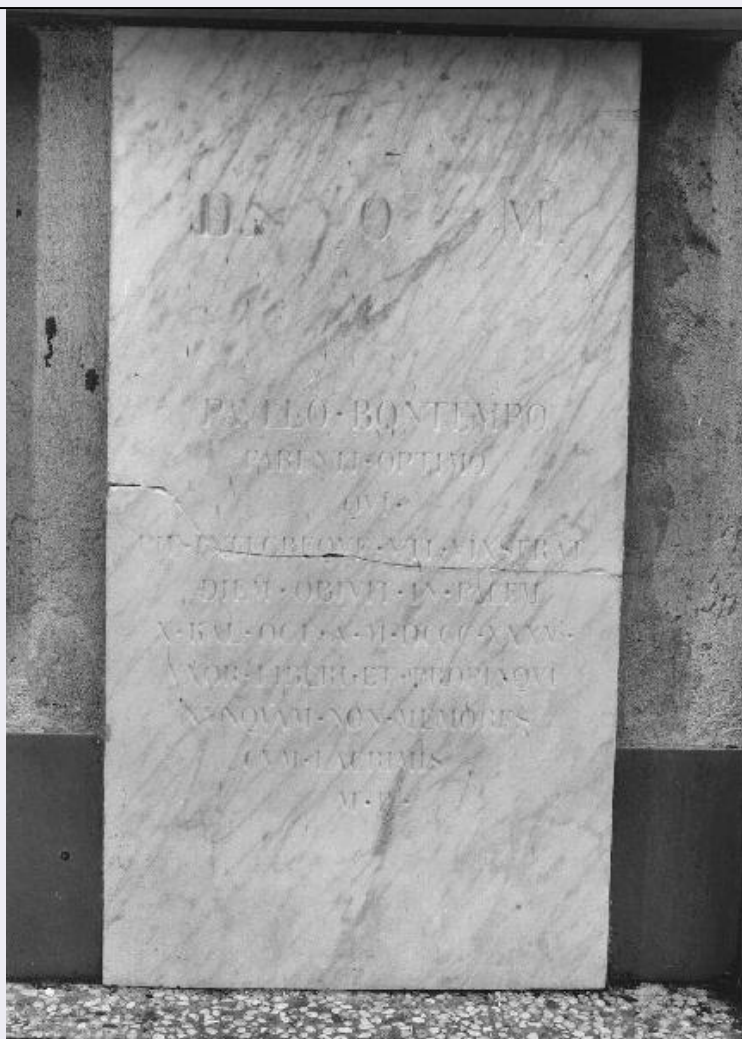 D. O. M.
PAVLLO·BONTEMPO
PARENTI·OPTIMO
QVI·
PIE·INTEGREQVE·VTI·VIXERAT
DIEM·OBIVIT·IN·PACEM
X·KAL·OCT·A·M·DCCC·XXXV·
VXOR·LIBERI·ET·PROPINQVI
NVNQVAM·NON·MEMORES
CVM·LACRIMIS
M·P·